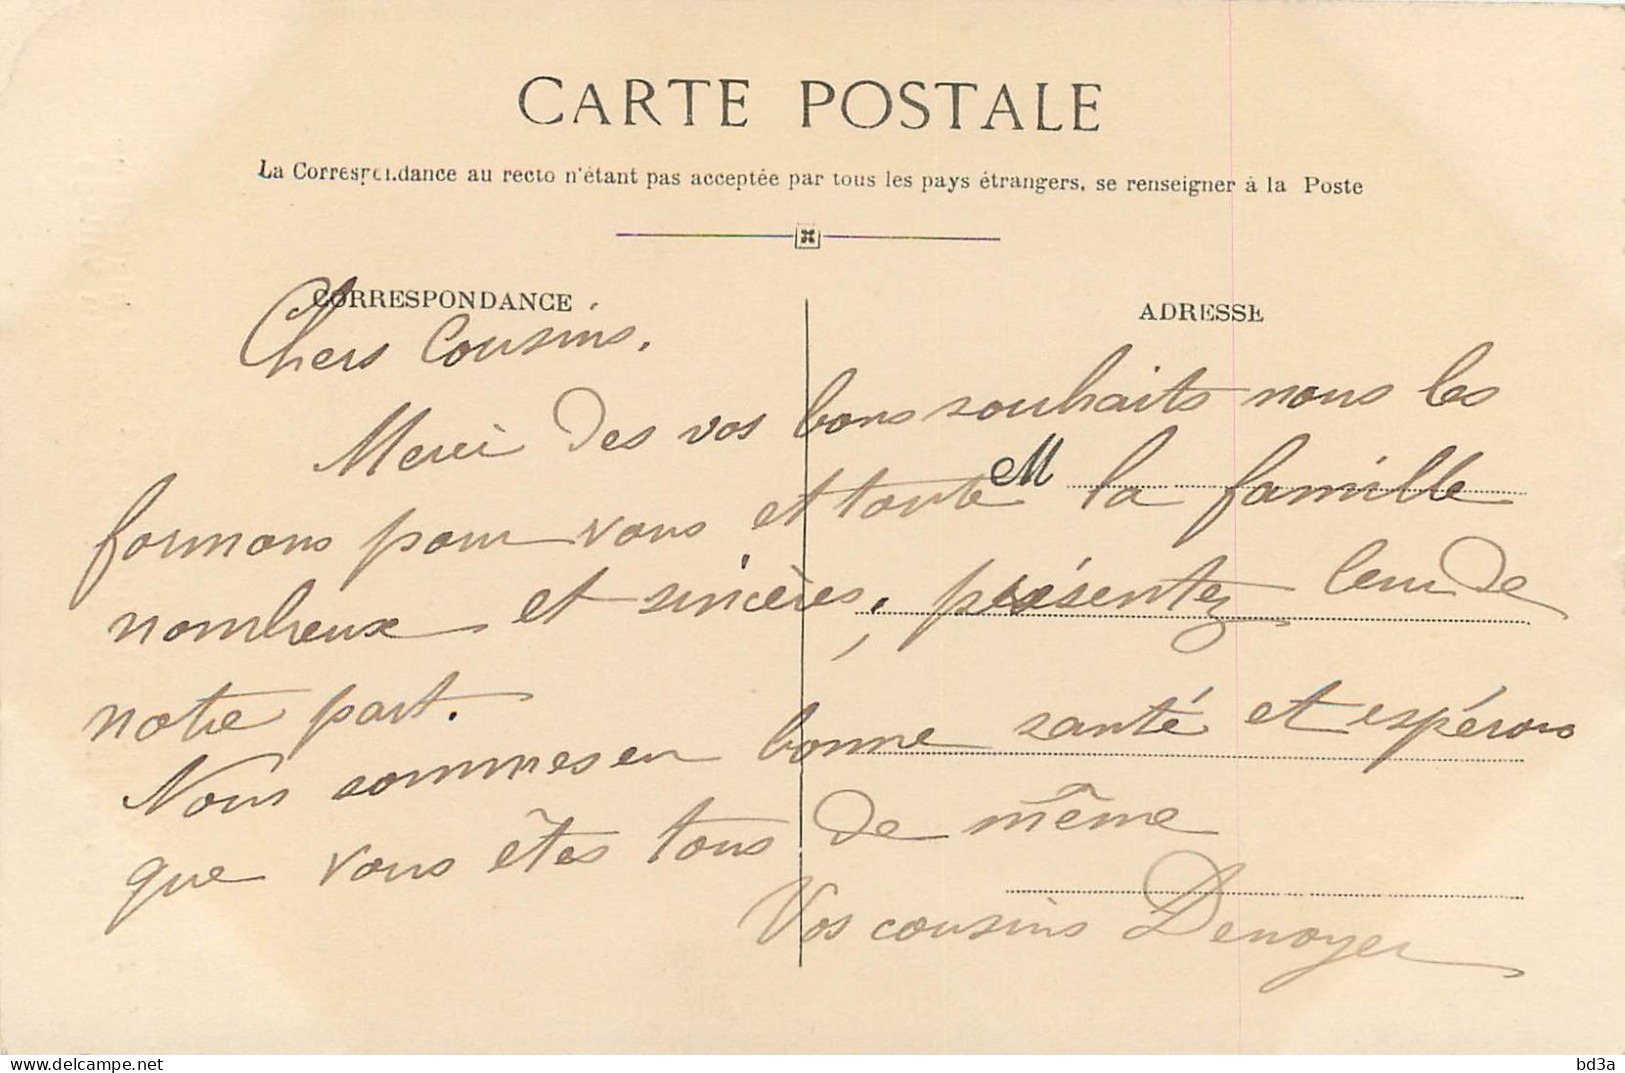 CARTE POSTALE
La Correspondance au recto n'étant pas acceptée par tous les pays étrangers, se renseigner à la Poste
CORRESPONDANCE
ADRESSE
Chers Cousins,
Merci des vos bons souhaits nous les
M
formons pour vous et toute la famille
nombreux et sincères, présentez leur de
notre part.
Nous sommes en bonne santé et espérons
que vous êtes tous de même
Vos cousins Denoyer
delcampe.net
bd3a